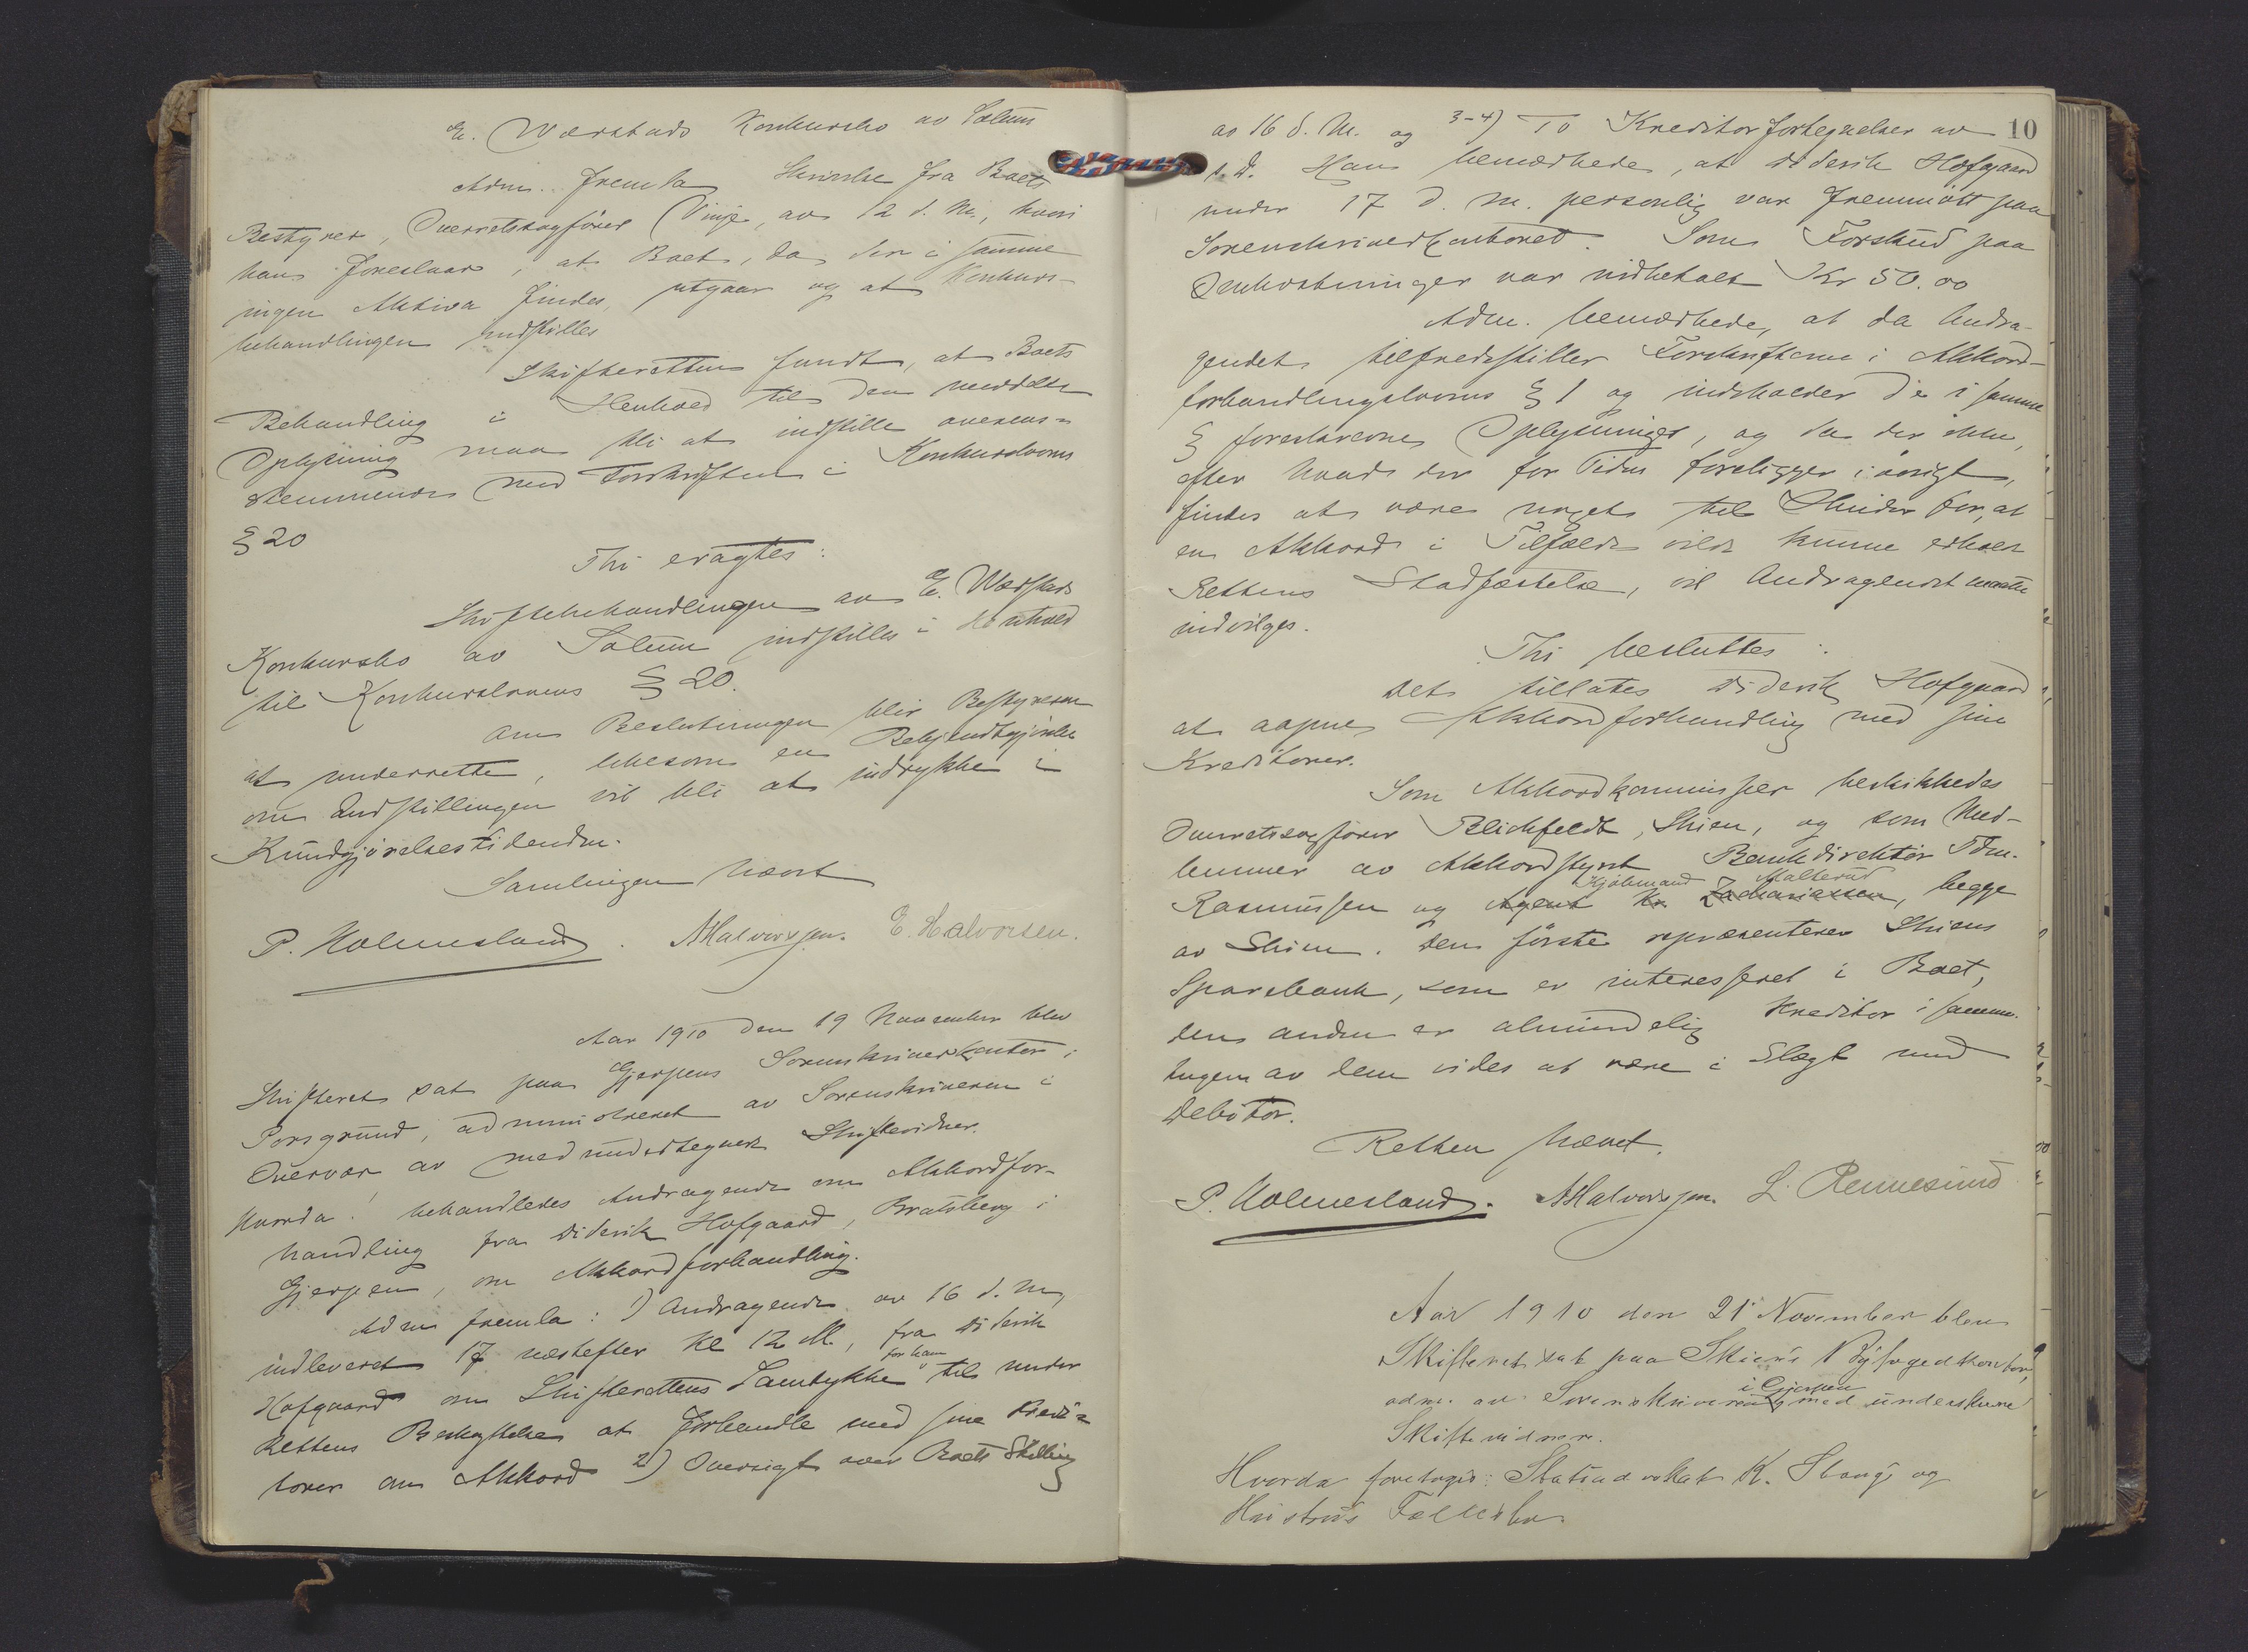 E. Værstads Konkursbo av Solum
Adm. fremla Skrivelse fra Boets
Bestyrer, Overretssagfører Vinje, av 12 d. M., hvori
han foreslaar, at Boet, da der i samme
ingen Aktiva findes, utgaar og at Konkurs-
behandlingen indstilles
Skifteretten fandt, at Boets
Behandling i Henhold til den meddelte
Oplysning maa bli at indstille overens-
stemmende med Forskriften i Konkurslovens
§ 20
Thi eragtes:
Skiftebehandlingen av E. Værstads
Konkursbo av Solum indstilles i Henhold
til Konkurslovens § 20.
Om Beslutningen blir Bestyreren
at underrette, likesom en Bekjendtgjørelse
om Indstillingen vil bli at indrykke i
Kundgjørelsestidenden.
Samlingen hævet
P. Holmesland. A Halvorsen. E. Halvorsen.
Aar 1910 den 19 November blev
Skifteret sat paa Gjerpens Sorenskriverkontor i
Porsgrund, administreret av Sorenskriveren i
Overvær av medundertegnede Skiftevidner.
Hvorda: behandledes Andragende om Akkordfor-
handling fra Diderik Hofgaard, Bratsberg i
Gjerpen, om Akkordforhandling.
Adm fremla: 1) Andragende av 16 d. M,
indleveret 17 næstefter Kl 12 M., fra Diderik
Hofgaard om Skifterettens Samtykke for ham til under
Rettens Beskyttelse at forhandle med sine Kredi-
torer om Akkord 2) Oversigt over Boets Stilling
10
av 16 d. M. og 3-4) To Kreditorfortegnelser av
s. D. Han bemærkede, at Diderik Hofgaard
under 17 d. M. personlig var fremmøtt paa
Sorenskriverkontoret. Som Forskud paa
Omkostninger var indbetalt Kr 50.00
Adm. bemærkede, at da Andra-
gendet tilfredsstiller Forskrifterne i Akkord-
forhandlingslovens § 1 og indeholder de i samme
§ foreskrevne Oplysninger, og da der ikke,
efter hvad der for Tiden foreligger iøvrigt,
findes at være noget til Hinder for, at
en Akkord i Tilfælde vilde kunne erholde
Rettens Stadfæstelse, vil Andragendet maatte
indvilges.
Thi besluttes:
Det tillates Diderik Hofgaard
at aapne Akkordforhandling med sine
Kreditorer.
Som Akkordkommissær beskikkedes
Overretssagfører Blichfeldt, Skien, og som Med-
lemmer av Akkordstyret Bankdirektør Tdm.
Kjøbmand Malterud
Rasmussen og Agent Kr. Zachariassen, begge
av Skien. Den første repræsenterer Skiens
Sparebank, som er interesseret i Boet,
den anden er almindelig Kreditor i samme.
Ingen av dem vides at være i Slægt med
Debitor.
Retten hævet.
P. Holmesland. A Halvorsen. L. Rennesund
Aar 1910 den 21 November blev
Skifteret sat paa Skiens Byfogedkontor,
i Gjerpen
adm. av Sorenskriveren med underskrevne
Skiftevidner.
Hvorda foretoges: Statsadvokat K. Stang og
Hustrus Fællesbo.